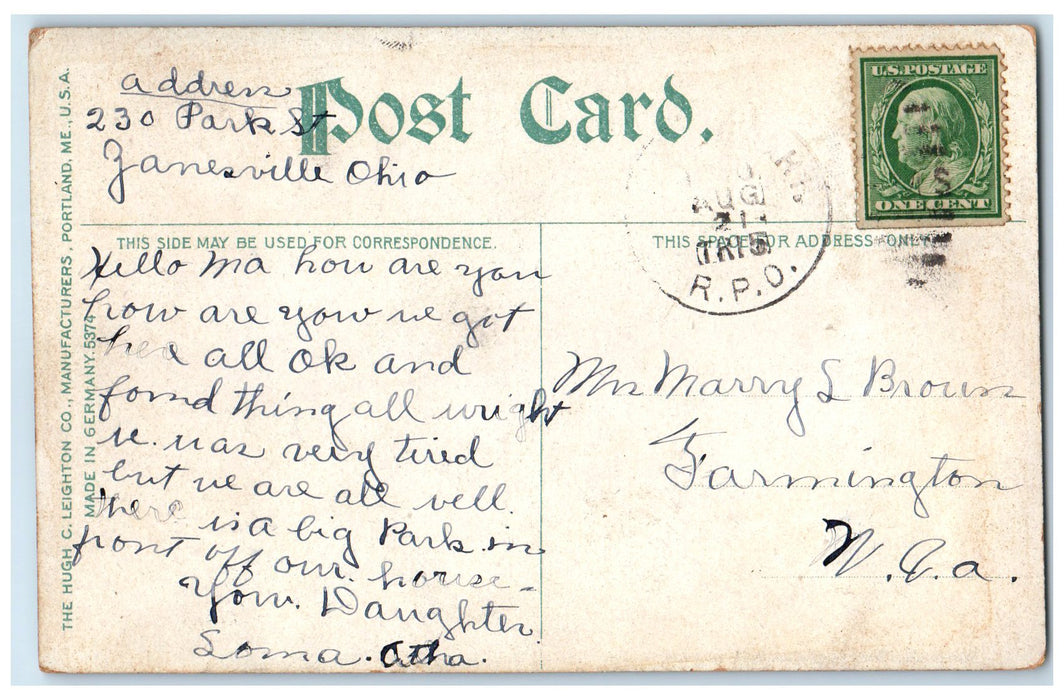 address
230 Park St
Zanesville Ohio
Post Card.
U.S. POSTAGE
ONE CENT
AUG
21
TR 15
R.P.O.
THE HUGH C. LEIGHTON CO., MANUFACTURERS, PORTLAND, ME., U.S.A.
MADE IN GERMANY. 5374
THIS SIDE MAY BE USED FOR CORRESPONDENCE.
Hello Ma how are you
how are yow we got
here all ok and
fornd thing all wright
we was very tired
but we are all well.
there is a big Park in
front off our house-
Yow. Daughter
Loma. Otha.
THIS SPACE FOR ADDRESS ONLY
Mrs Marry L Brown
Farmington
W. Va.